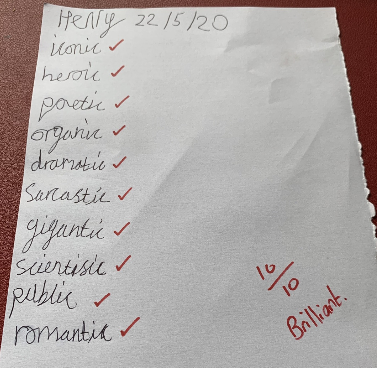 Henry 22/5/20
iconic ✓
heroic ✓
poetic ✓
organic ✓
dramatic ✓
Sarcastic ✓
gigantic ✓
scientisic ✓
public ✓
romantic ✓
10/10
Brilliant.